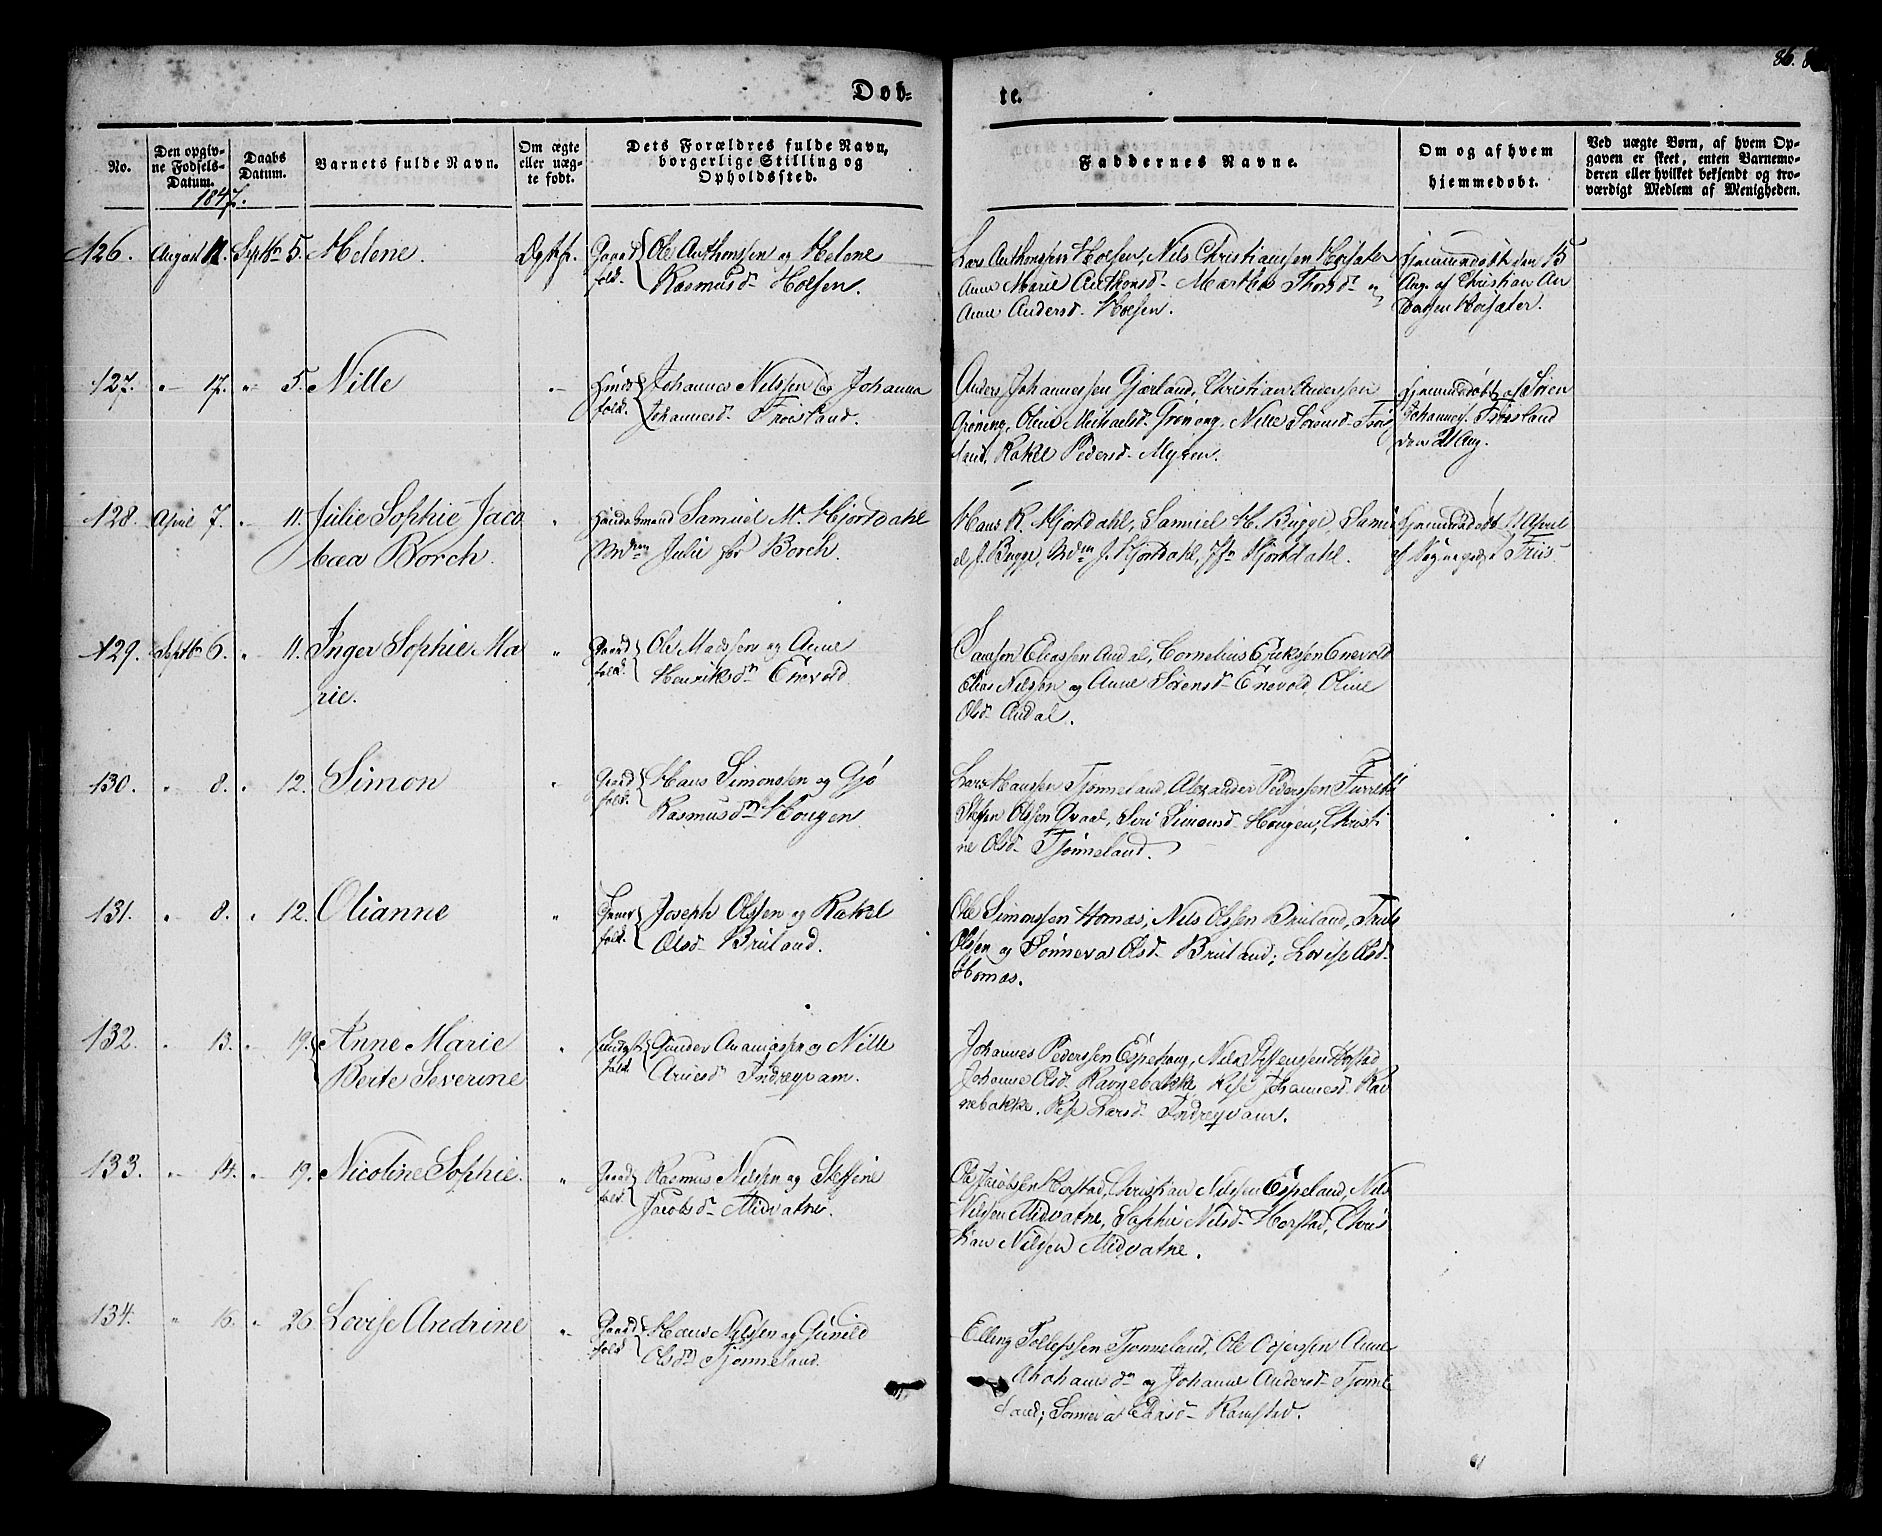 Døb-
te.
86.
No.
Den opgiv-
ne Fødsels-
Datum.
1847.
Daabs
Datum.
Barnets fulde Navn.
Om ægte
eller uæg-
te født.
Dets Forældres fulde Navn,
borgerlige Stilling og
Opholdssted.
Faddernes Navne.
Om og af hvem
hjemmedøbt.
Ved uægte Børn, af hvem Op-
gaven er skeet, enten Barnemo-
deren eller hvilket bekjendt og tro-
værdigt Medlem af Menigheden.
126. August 12. Septbr 5. Helene. Ægtf. Gaard
folk. Ole Anthonssen og Helene
Rasmusd. Holsen.
Lars Anthonssen Holsen, Nils Christianssen Horsater
Anne Marie Anthonsd. Marthe Thorsd. og
Anne Andersd. Holsen.
Hjemmedøbt den 15
Aug. af Christian An
derssen Horsater.
127. " 17. " 5. Nille " Huus
folk. Johannes Nilssen og Johanna
Johannesd. Frøisland.
Anders Johannessen Gjærland, Christian Anderssen
Grøning, Oline Michaelsd. Grøning, Nille Sørensd. Frøis
land, Rakel Pedersd. Myren.
Hjemmedøbt af Søren
Johanness. Frøisland
den 21 Aug.
128. April 7. " 11. Julie Sophie Jaco
bæa Borch. " Handelsmand Samuel M. Hjortdahl
Mdm Julie før Borch.
Hans R. Hjortdahl, Samuel H. Bugge, Samu
el J. Bugge, Mdm J. Hjortdahl, Jfr Hjortdahl.
Hjemmedøbt 11 April
af Sognepræst Friis.
129. Septbr 6. " 11. Inger Sophie Ma
rie. " Gaard
folk. Ole Madssen og Anne
Henriksd. Enevold.
Samson Eliassen Andal, Cornelius Erikssen Enevold
Elias Nilssen og Anne Sørensd. Enevold, Oline
Olsd. Andal.
130. " 8. " 12. Simon " Gaard
folk. Hans Simonssen og Gjø
Rasmusd. Hougen
Lars Hanssen Tjønneland, Alexander Pederssen
Olssen Qvaal, Siri Simonsd. Hougen, Christi
ne Olsd. Tjønneland.
131. " 8. " 12. Olianne "
folk. Joseph Olssen og Rakel
Olsd. Bruland.
Ole Simonssen Hornæs, Nils Olssen Bruland,
Olssen og Sønneva Olsd. Bruland; Lovise Olsd.
Hornæs.
132. " 13. " 19. Anne Marie
Berte Severine "
folk. Gunder Ananiassen og Nille
Arnesd. Indreqvam.
Johannes Pederssen Espehaug, Nils Hofstad
Johanne Olsd. Ravnebakke Johannesd. Rav
nebakke. Larsd. Indreqvam.
133. " 14. " 19. Nicoline Sophie. " Gaard
folk. Rasmus Nilssen og Steffine
Jacobsd. Midvatne.
Ole Jacobsen Horstad, Christian Nilssen Espeland, Nils
Nilssen Midvatne, Sophie Nilsd. Horstad, Chris
tian Nilssen Midvatne.
134. " 16. " 26. Lovise Andrine " Gaard
folk Hans Nilssen og Gunild
Olsd. Tjønneland.
Elling Tollefssen Tjønneland, Ole Anne
og Johanne Andersd. Tjønne
land; Sønneva Ramstad.